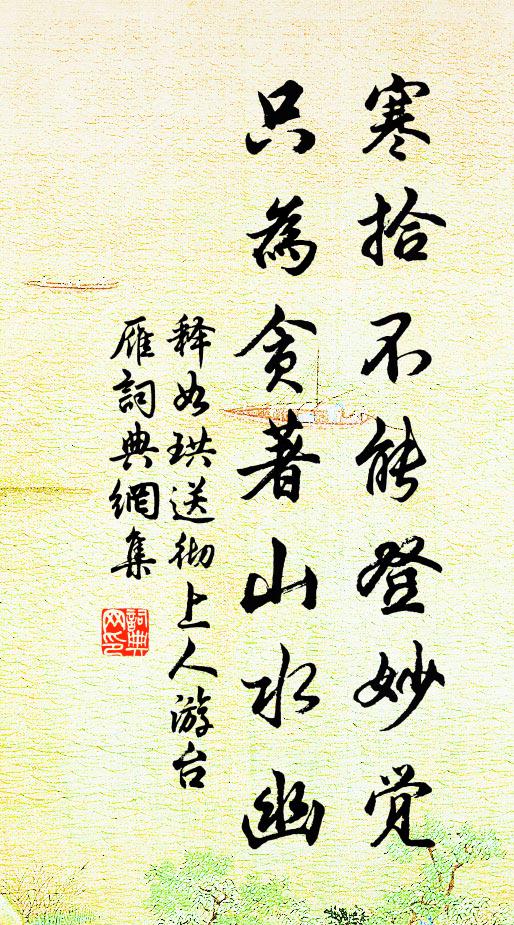 寒拾不能登妙觉
只為贪著山水幽
释如珙送彻上人游台
雁詞典網集
詞典网印